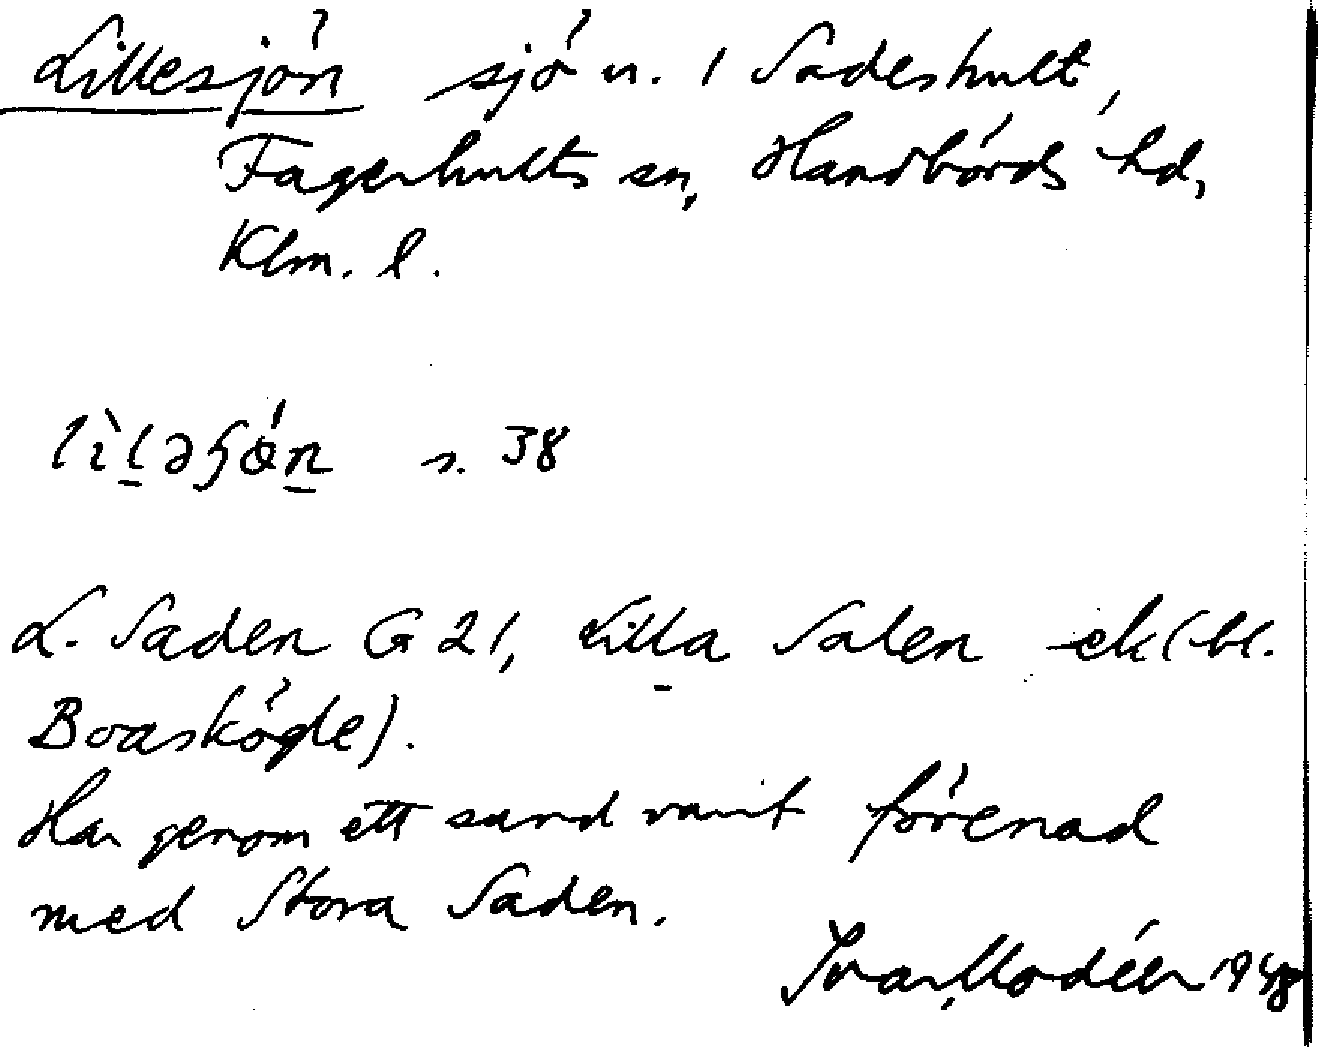 Lillesjön sjö n. 1 Sadeshult,
Fagerhults sn, Handbörds hd,
Klm. l.
s. 38
L. Saden G 21, Lilla Salen ek(bl.
Boaskögle).
Har genom ett sund varit förenad
med Stora Saden.
Ivar Modéer 1948